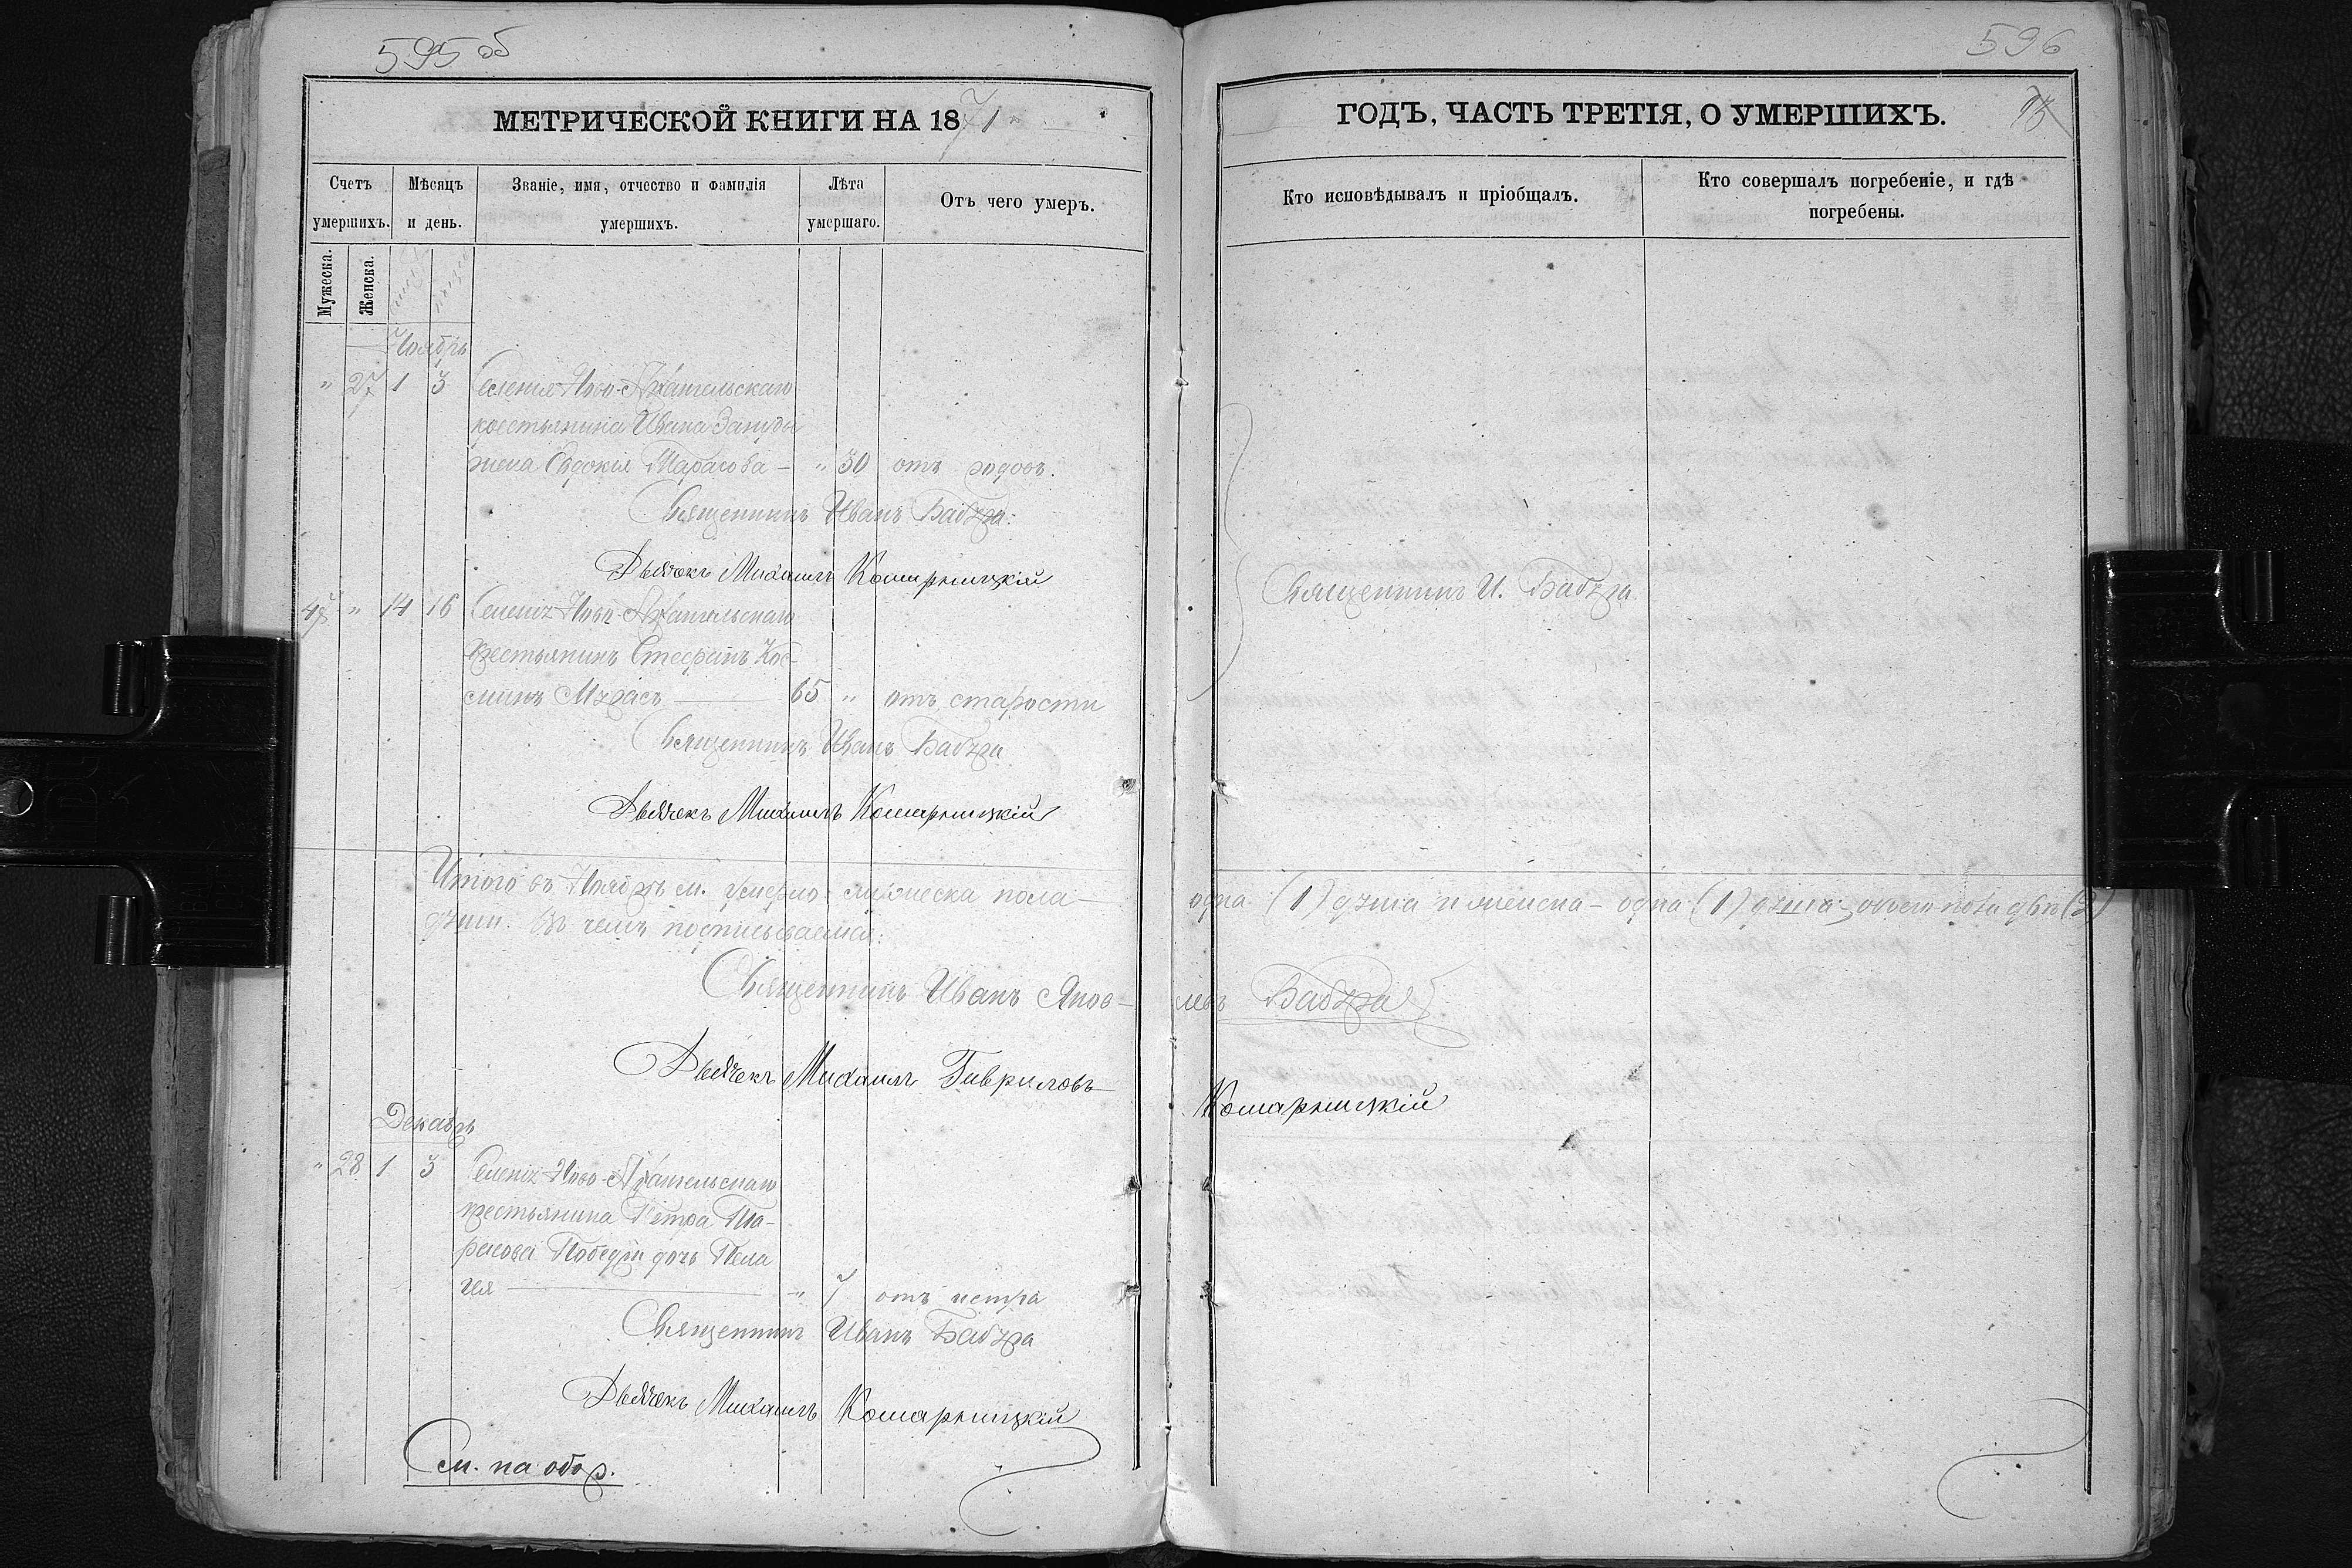 595 об
МЕТРИЧЕСКОЙ КНИГИ НА 1871
Счетъ умершихъ.
Мѣсяцъ и день.
Званіе, имя, отчество и фамилія умершихъ.
Лѣта умершаго.
Отъ чего умеръ.
Мужеска.
Женска.
Ноябрь
" 27 1 3 Селенія Ново-Архангельскаго
крестьянина Ивана
жена Евдокія Тарасова — " 30 отъ родовъ.
Священникъ Иванъ Бабура.
Дьячекъ Михаилъ Комарницкій
47 " 14 16 Селенія Ново-Архангельскаго
крестьянинъ Стефанъ Кос-
минъ — 65 " отъ старости
Священникъ Иванъ Бабура
Дьячекъ Михаилъ Комарницкій
Итого въ Ноябрѣ м. умерло: мужеска пола —
души. Въ чемъ подписываемся:
Священникъ Иванъ Яков-
Дьячекъ Михаилъ Гавриловъ
Декабрь
" 28 1 3 Селенія Ново-Архангельскаго
крестьянина Петра Та-
расова дочь Пела
гія — " 7
Священникъ Иванъ Бабура
Дьячекъ Михаилъ Комарницкій
См. на обор.
596
ГОДЪ, ЧАСТЬ ТРЕТІЯ, О УМЕРШИХЪ.
Кто исповѣдывалъ и пріобщалъ.
Кто совершалъ погребеніе, и гдѣ погребены.
Священникъ И. Бабура
одна (1) душа и женска — одна (1) душа, обоего пола двѣ (2)
левъ Бабура
Комарницкій